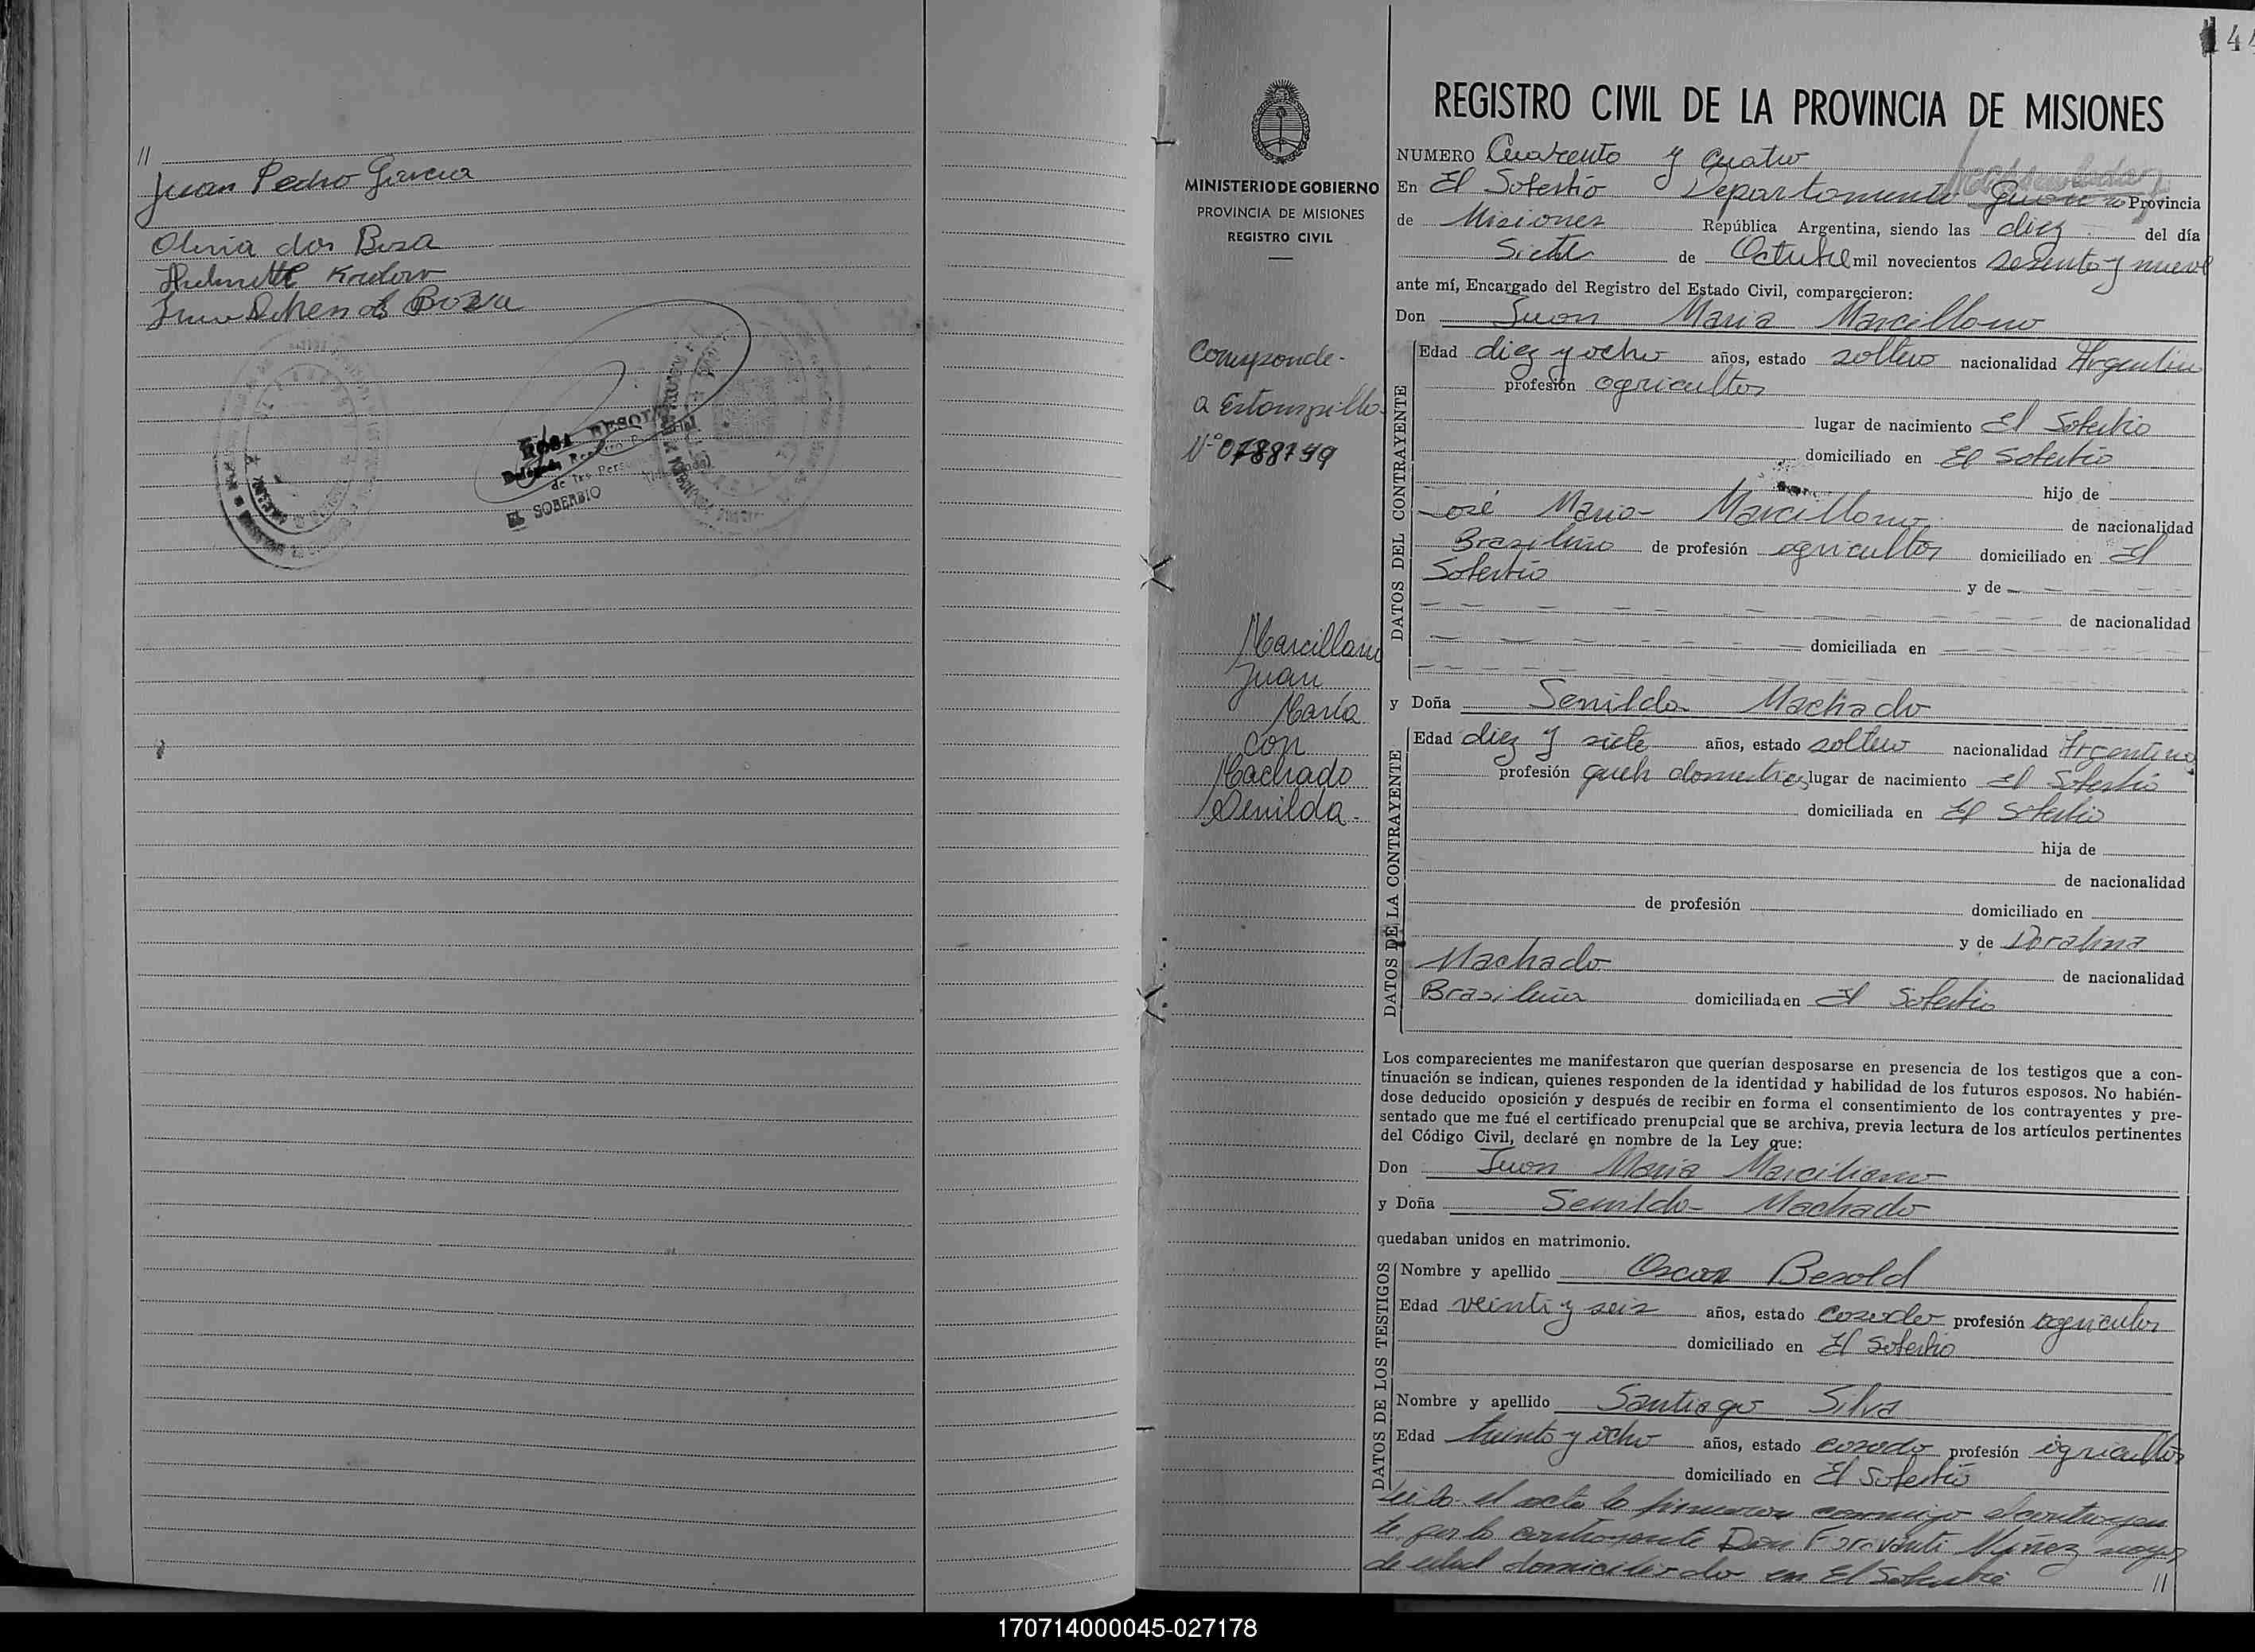 //
Juan Pedro Garcia
Olivia dos Bosa
Krulow
EL SOBERBIO
44
REGISTRO CIVIL DE LA PROVINCIA DE MISIONES
MINISTERIO DE GOBIERNO
PROVINCIA DE MISIONES
REGISTRO CIVIL
Corresponde
a Estampilla
Nº 0788799
Marcillano
Juan
María
con
Machado
Senilda.
NUMERO Cuarento y Cuatro
En El Soberbio Departamento Provincia
de Misiones República Argentina, siendo las diez del día
Siete de Octubre mil novecientos sesenta y nueve
ante mí, Encargado del Registro del Estado Civil, comparecieron:
Don Juan Maria Marcillano
DATOS DEL CONTRAYENTE
Edad diez y ocho años, estado soltero nacionalidad Argentino
profesión agricultor
lugar de nacimiento El Soberbio
domiciliado en El Soberbio
hijo de
José Maria Marcillano de nacionalidad
Brasileño de profesión agricultor domiciliado en El
Soberbio y de
de nacionalidad
domiciliada en
y Doña Senilda Machado
DATOS DE LA CONTRAYENTE
Edad diez y siete años, estado soltero nacionalidad Argentina
profesión queh domesticos lugar de nacimiento El Soberbio
domiciliada en El Soberbio
hija de
de nacionalidad
de profesión domiciliado en
y de Doralina
Machado de nacionalidad
Brasileña domiciliada en El Soberbio
Los comparecientes me manifestaron que querían desposarse en presencia de los testigos que a con-
tinuación se indican, quienes responden de la identidad y habilidad de los futuros esposos. No habién-
dose deducido oposición y después de recibir en forma el consentimiento de los contrayentes y pre-
sentado que me fué el certificado prenupcial que se archiva, previa lectura de los artículos pertinentes
del Código Civil, declaré en nombre de la Ley que:
Don Juan Maria Marciliano
y Doña Senilda Machado
quedaban unidos en matrimonio.
DATOS DE LOS TESTIGOS
Nombre y apellido Oscar Besold
Edad veinti y seis años, estado casado profesión agricultor
domiciliado en El Soberbio
Nombre y apellido Santiago Silva
Edad treinta y ocho años, estado casado profesión agricultor
domiciliado en El Soberbio
Leida el acta la firmaron conmigo el contrayen
te por la contrayente Don Foravanti Nuñez mayor
de edad domiciliado en El Soberbio //
170714000045-027178